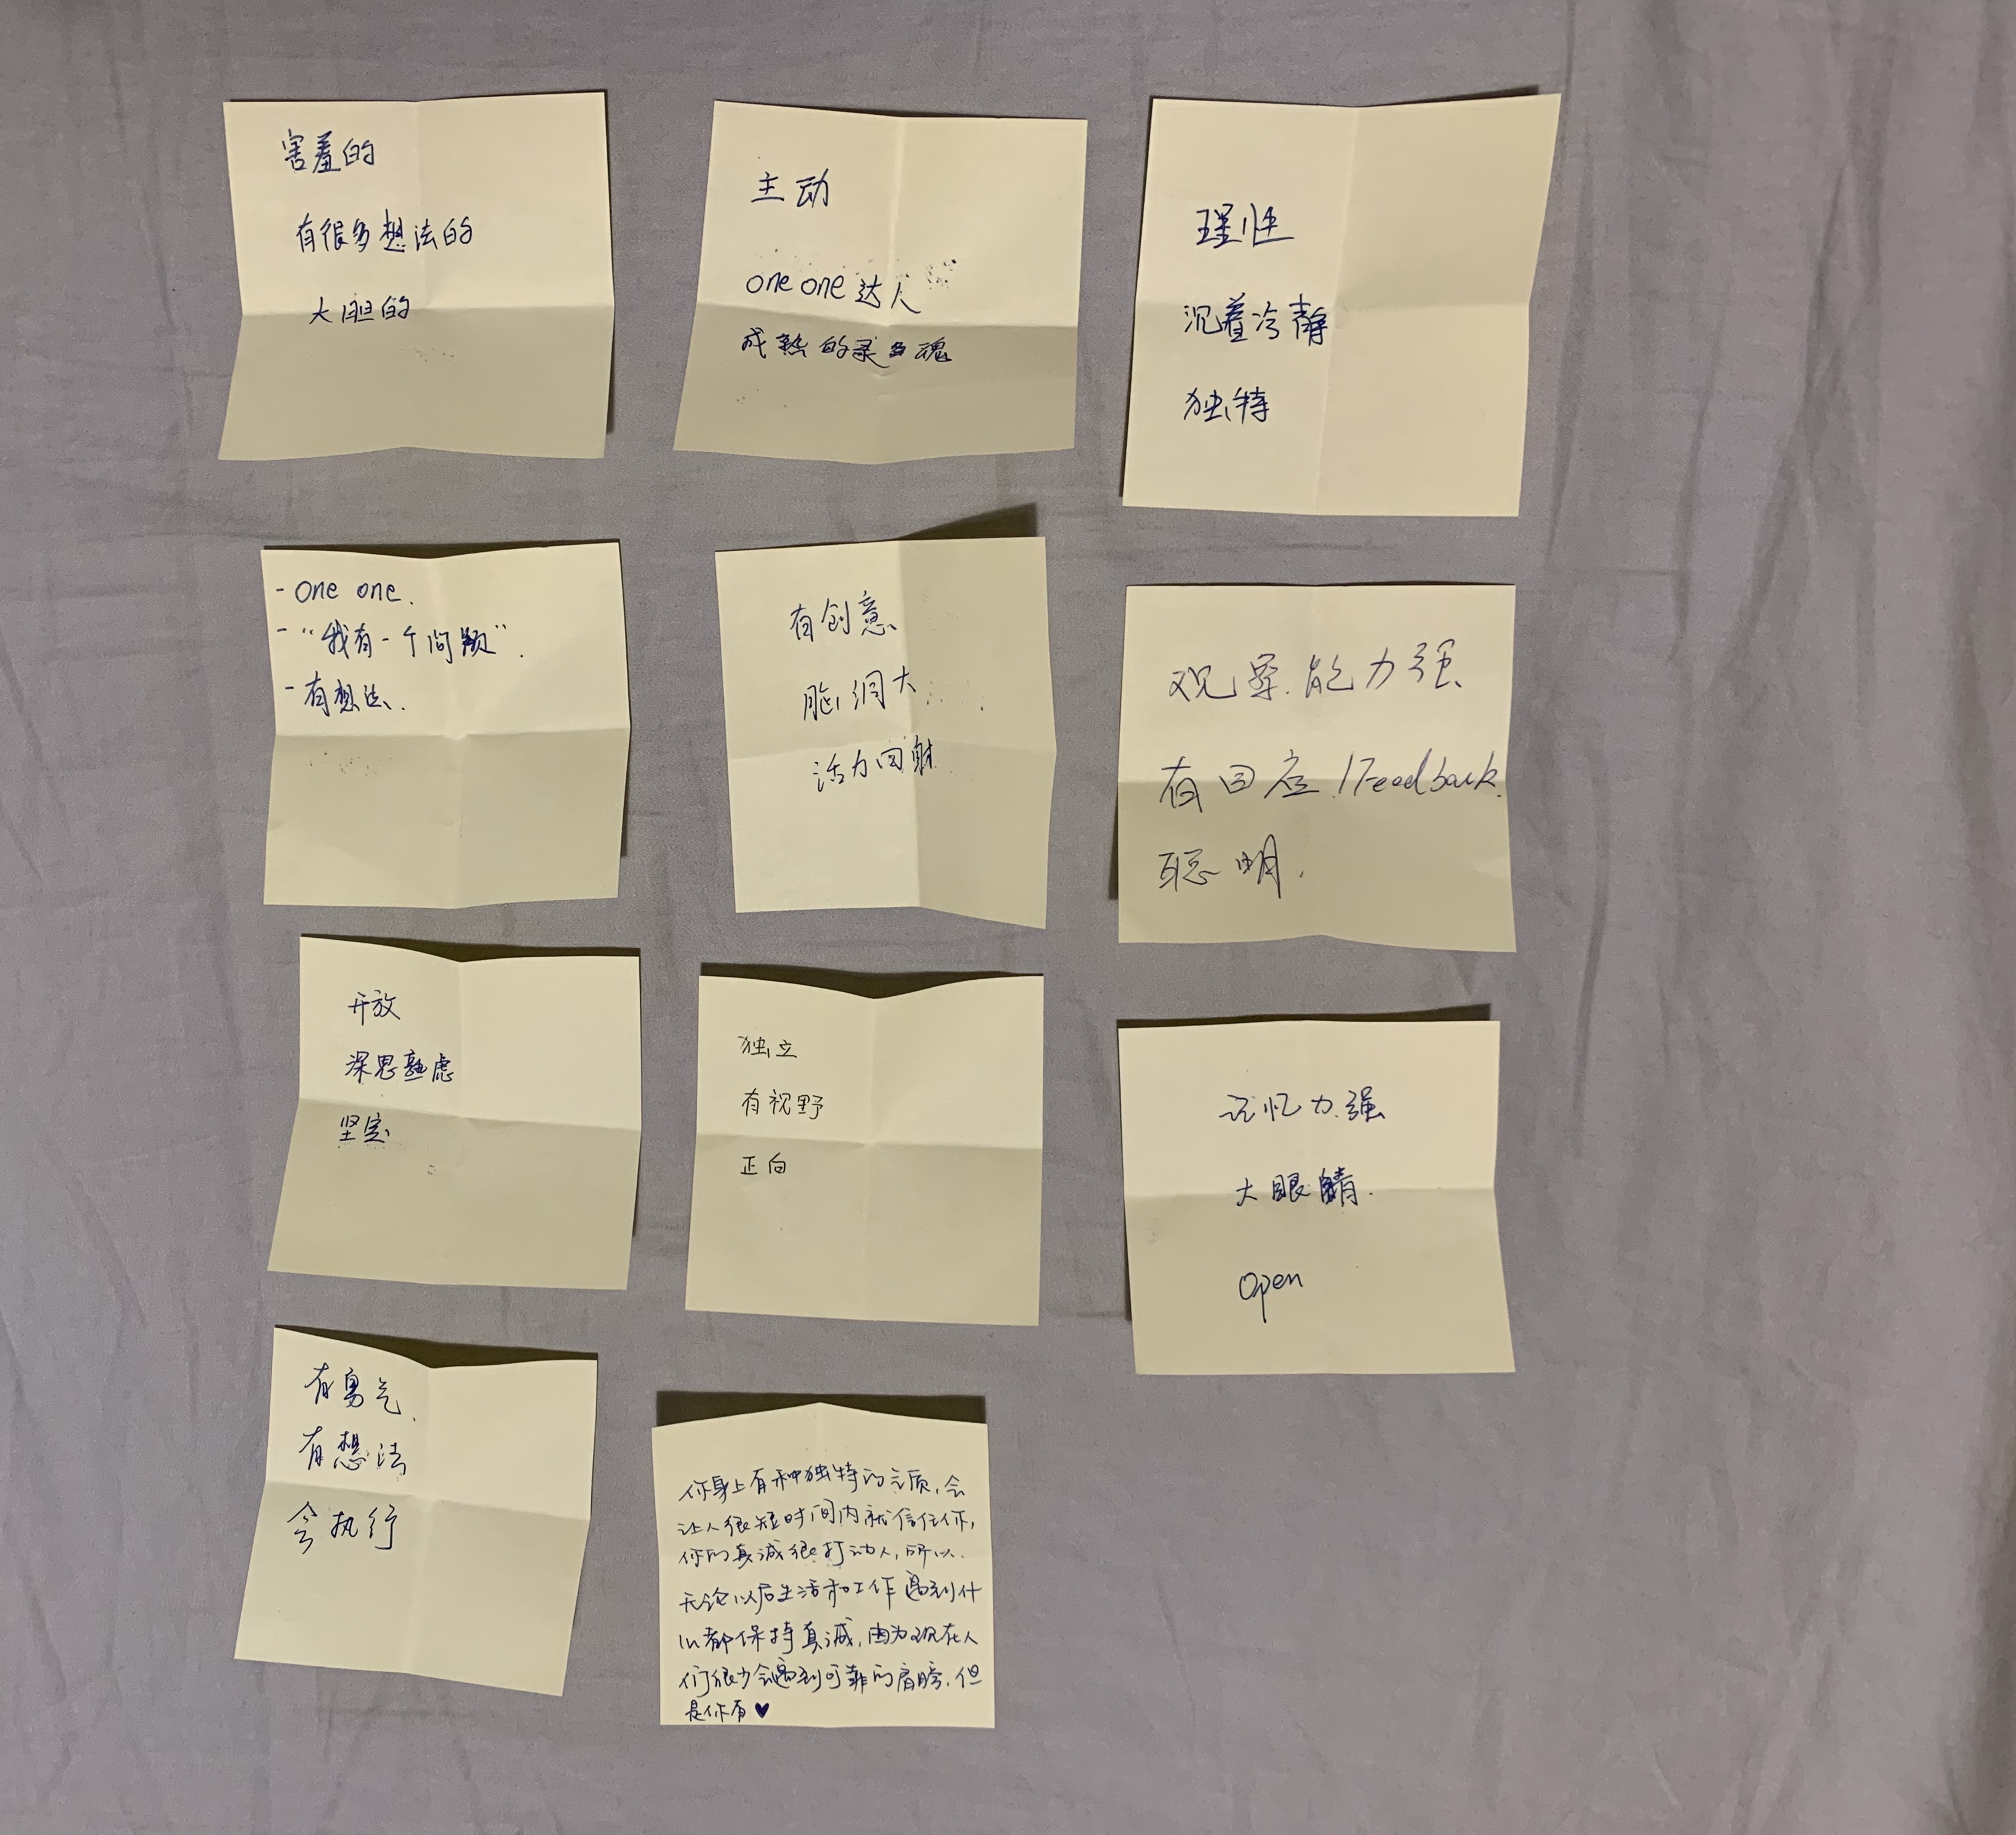 害羞的
有很多想法的
大胆的
主动
one one 达人
成熟的灵魂
理性
沉着冷静
独特
- one one.
- "我有一个问题".
- 有想法.
有创意
脑洞大
活力四射
观察能力强
有回应/Feedback.
聪明.
开放
深思熟虑
坚定
独立
有视野
正向
记忆力强
大眼睛.
open
有勇气.
有想法
会执行
你身上有种独特的气质,会
让人很短时间内就信任你,
你的真诚很打动人,所以
无论以后生活和工作遇到什
么都保持真诚,因为现在人
们很少会遇到可靠的肩膀,但
是你有♥